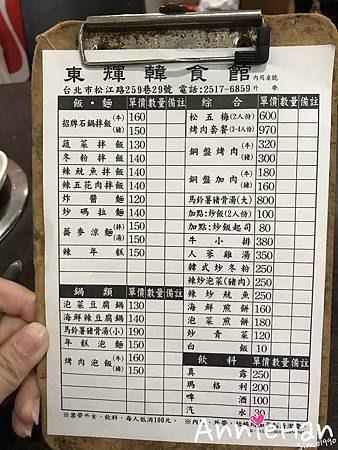 東輝韓食館 內用桌號
台北市松江路259巷29號 電話:2517-6859 外帶
飯・麵 單價 數量 備註
招牌石鍋拌飯(牛) 160
(豬) 150
蔬菜拌飯 130
冬粉拌飯 140
辣魷魚拌飯 140
辣五花肉拌飯 140
炸醬麵 120
炒碼拉麵 140
蕎麥涼麵(拌) 150
(湯) 150
辣年糕 150
鍋類 單價 數量 備註
泡菜豆腐鍋 130
海鮮辣豆腐鍋 140
馬鈴薯豬骨湯(小) 190
年糕泡麵 130
烤肉泡飯(牛) 160
(豬) 150
綜合 單價 數量 備註
松五梅(2人份) 600
烤肉套餐(3-4人份) 970
銅盤烤肉(牛) 320
(豬) 300
銅盤加肉(牛) 180
(豬) 160
馬鈴薯豬骨湯(大) 800
加點:炒飯(2人份) 100
加點:炒飯起司 80
牛小排 380
人蔘雞湯 350
韓式炒冬粉 250
辣炒泡菜(豬肉) 250
辣炒魷魚 250
海鮮煎餅 160
泡菜煎餅 180
炒青菜 120
白飯 10
飲料 單價 數量 備註
真露 250
瑪格利 200
啤酒 100
汽水 30
※禁帶外食、飲料,每人低消100元。
Annieнan
since1990